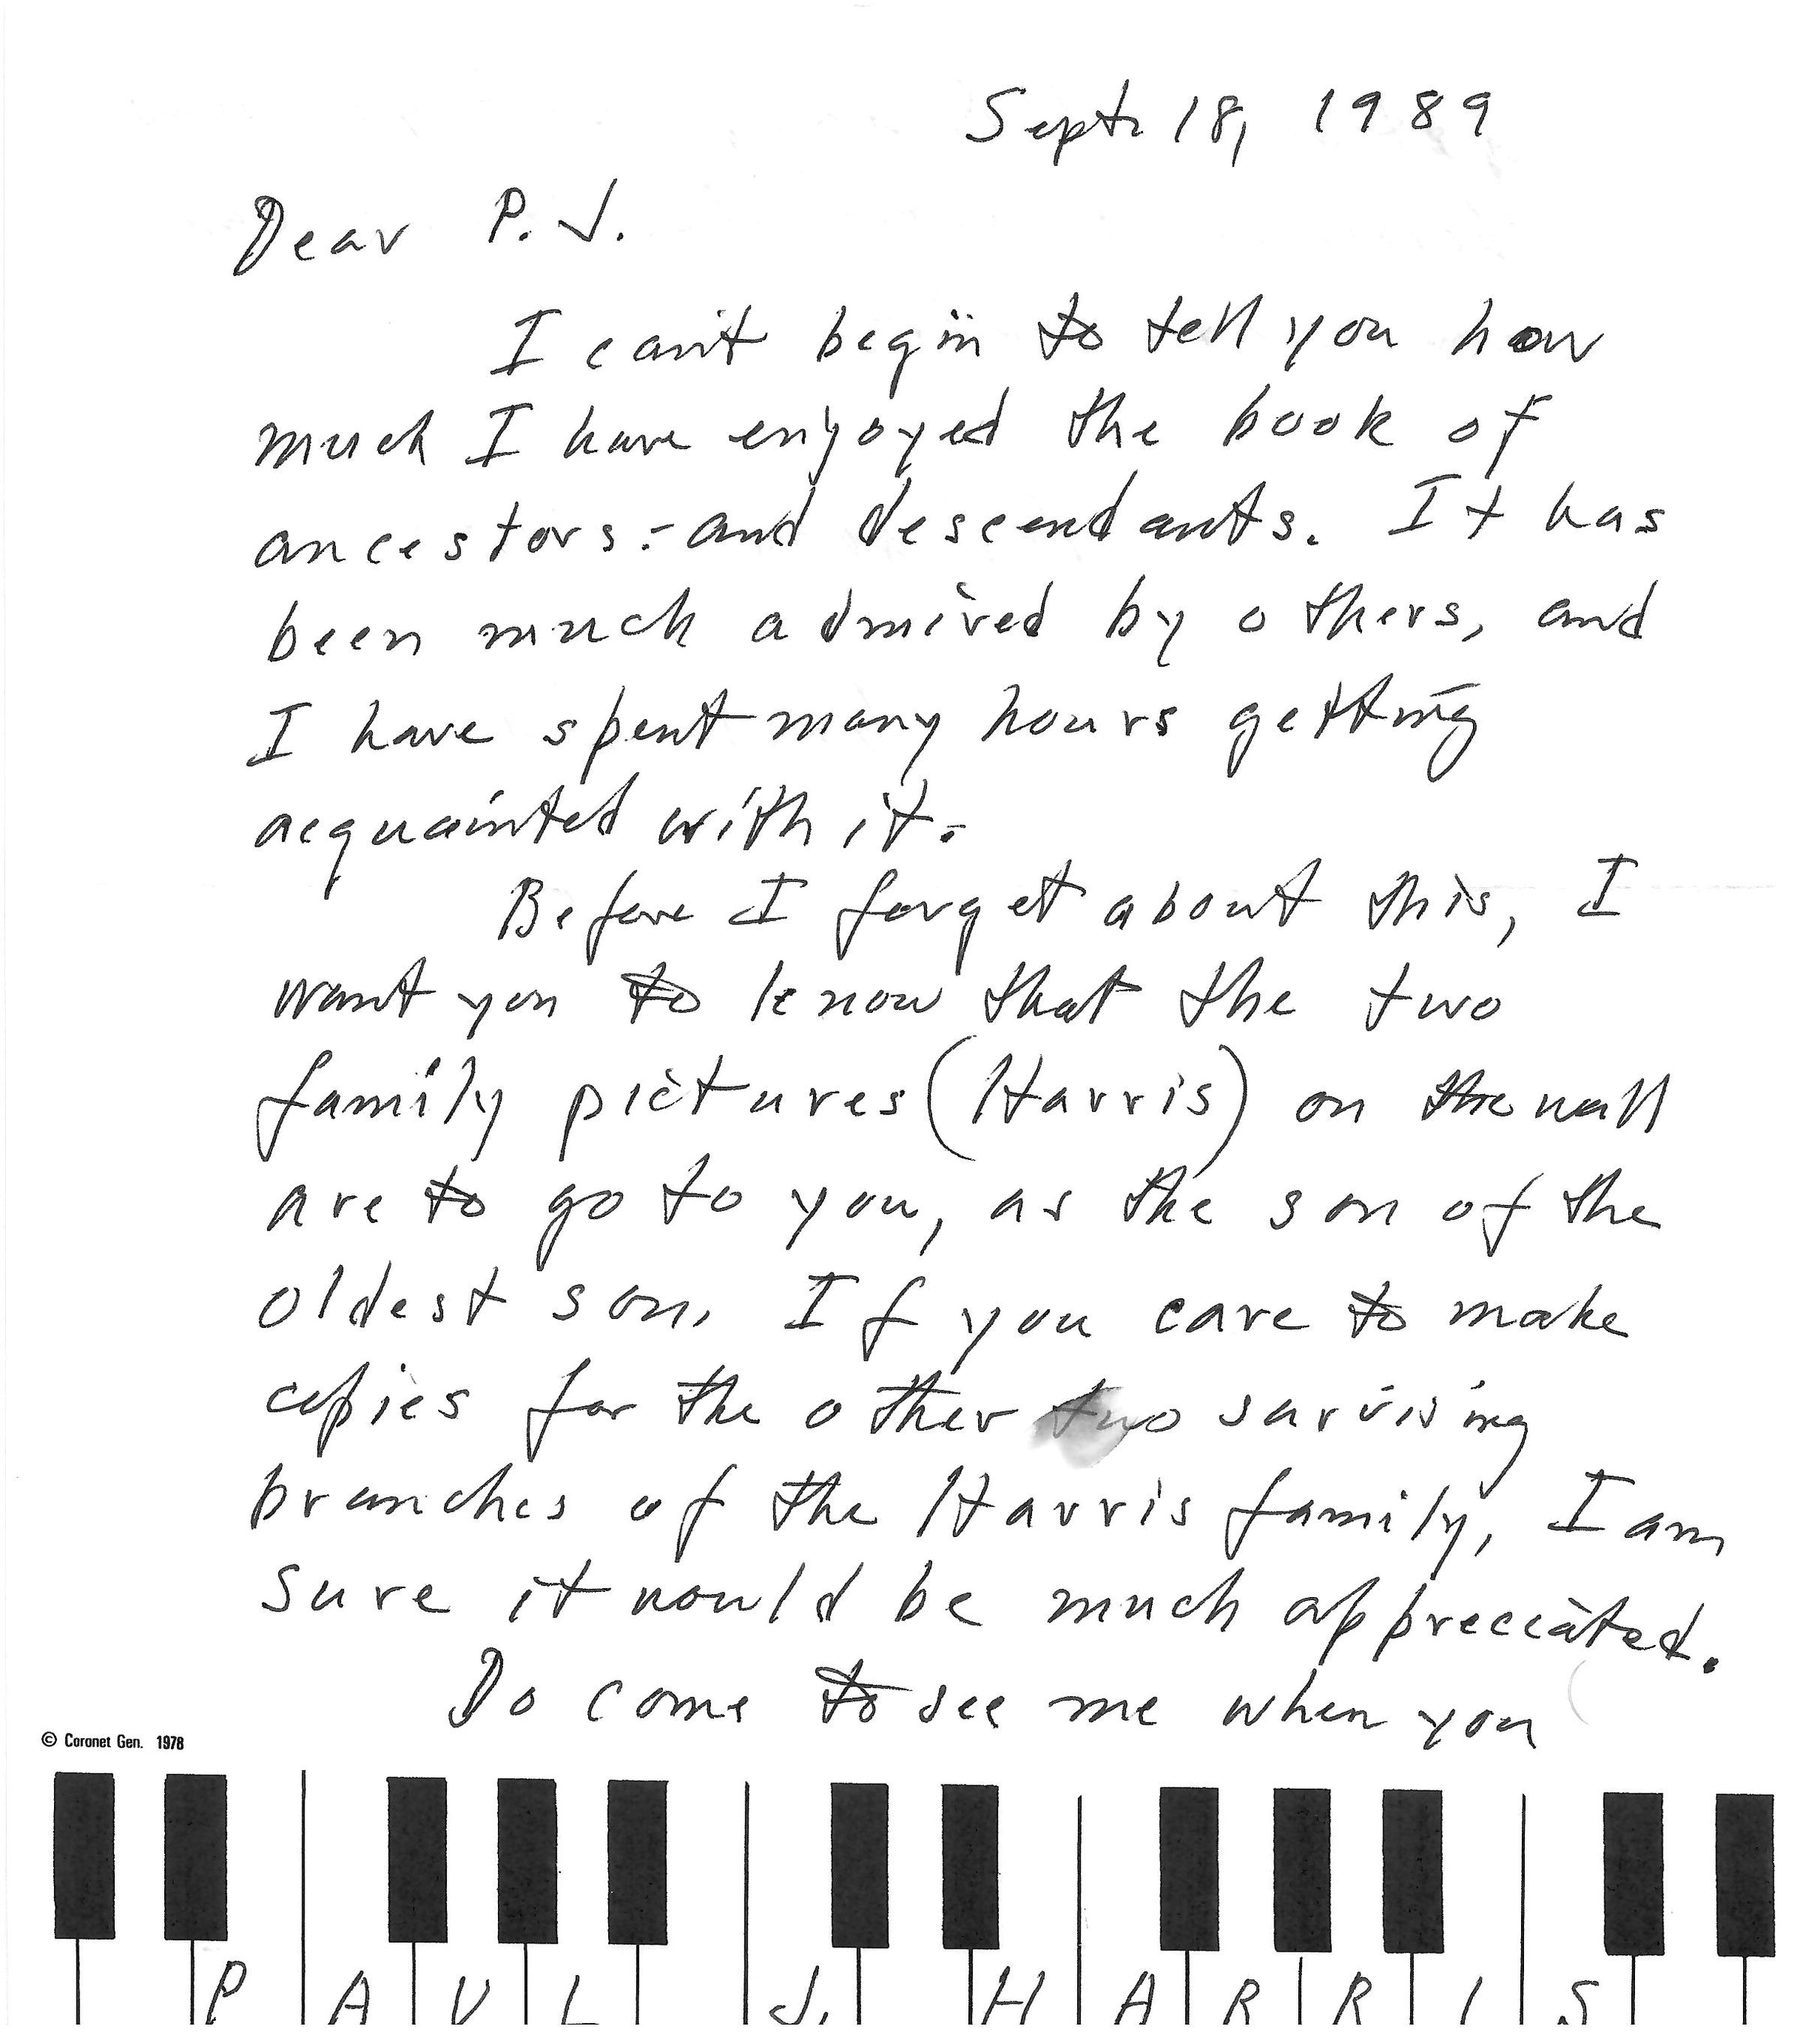 Sept. 18, 1989
Dear P. J.
I can't begin to tell you how
much I have enjoyed the book of
ancestors - and descendants. It has
been much admired by others, and
I have spent many hours getting
acquainted with it.
Before I forget about this, I
want you to know that the two
family pictures (Harris) on the wall
are to go to you, as the son of the
oldest son. If you care to make
copies for the other two surviving
branches of the Harris family, I am
sure it would be much appreciated.
Do come to see me when you
© Coronet Gen. 1978
PAUL J. HARRIS